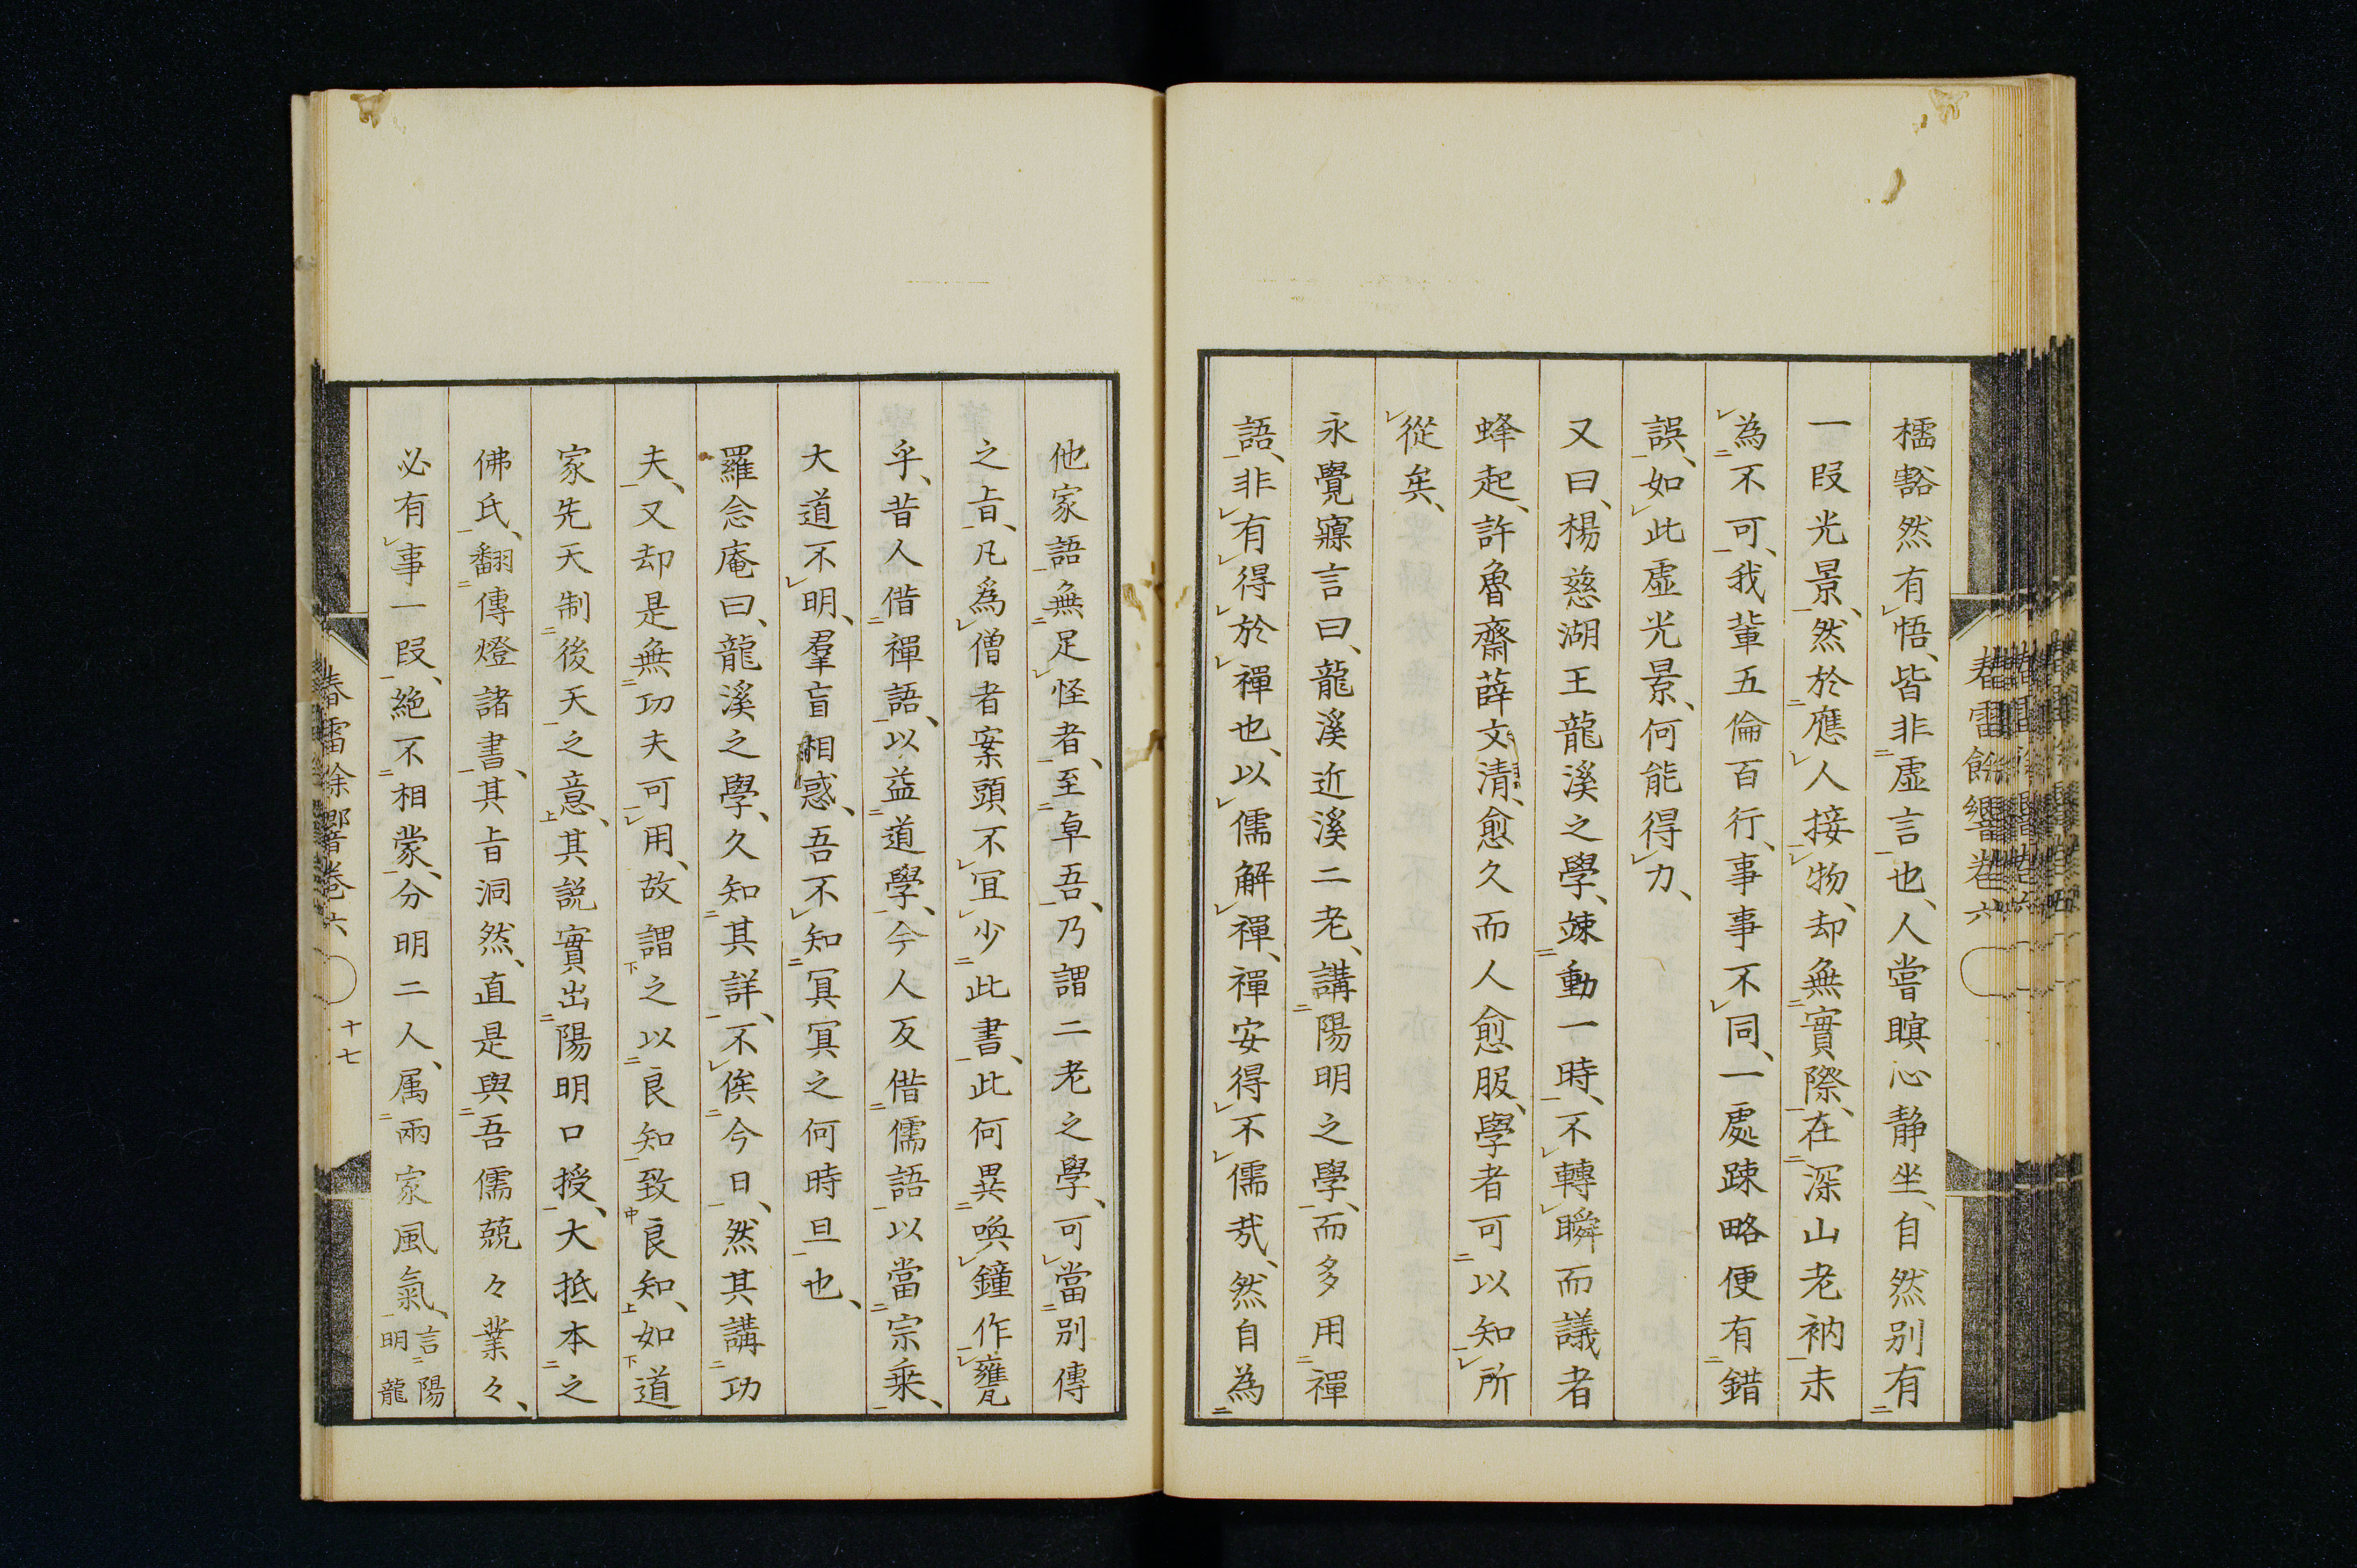 檽豁然有悟、皆非虛言也、人嘗瞑心靜坐、自然別有
一段光景、然於應人接物、却無實際、在深山老衲未
為不可、我輩五倫百行、事事不同、一處踈略便有錯
誤、如此虛光景、何能得力、
又曰、楊慈湖王龍溪之學、竦動一時、不轉瞬而議者
蜂起、許魯齋薛文清、愈久而人愈服、學者可以知所
從矣、
永覺寱言曰、龍溪近溪二老、講陽明之學、而多用禪
語、非有得於禪也、以儒解禪、禪安得不儒哉、然自為
春雷餘響卷六
他家語無足怪者、至卓吾、乃謂二老之學、可當別傳
之旨、凡為僧者案頭不冝少此書、此何異喚鐘作甕
乎、昔人借禪語、以益道學、今人反借儒語以當宗乘、
大道不明、羣盲相惑、吾不知冥冥之何時旦也、
羅念庵曰、龍溪之學、久知其詳、不俟今日、然其講功
夫、又却是無功夫可用、故謂之以良知致良知、如道
家先天制後天之意、其説實出陽明口授、大抵本之
佛氏、翻傳燈諸書、其旨洞然、直是與吾儒兢々業々、
必有事一段、絶不相蒙、分明二人、属兩家風氣、言陽明龍
春雷餘響卷六
十七